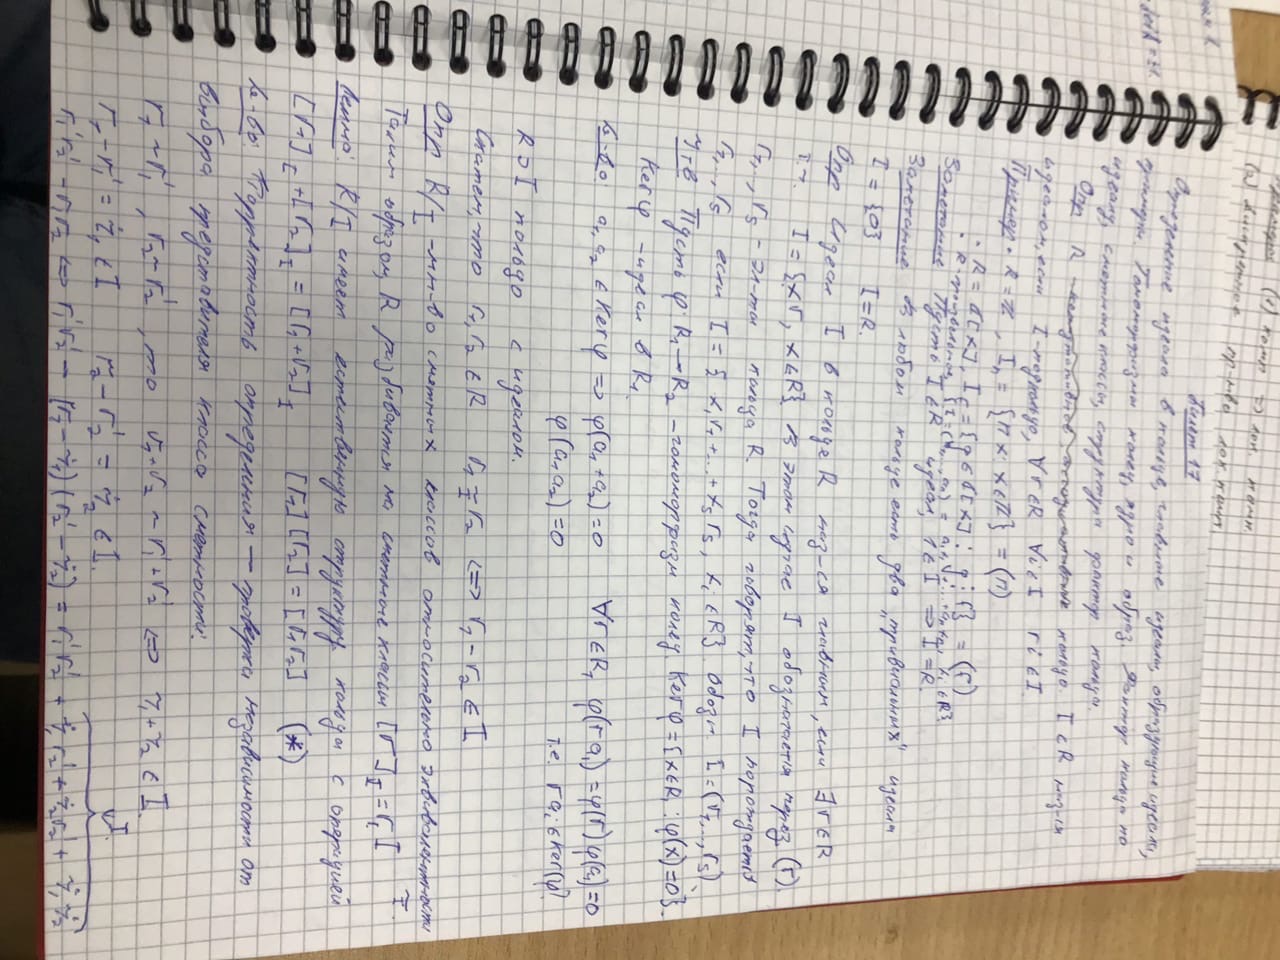 (1) комп ⇒ лок. комп.
(2) Дискретное пр-тва лок. комп.
Билет 17
Определение идеала в кольце, главные идеалы, образующие идеала,
примеры. Гомоморфизмы колец, ядро и образ. Фактор кольца по
идеалу, смежные классы, структура фактор кольца.
Опр R - кольцо. I ⊂ R наз-ся
идеалом, если I - подкольцо, ∀r∈R ∀i∈I ri∈I.
Пример • R = ℤ, Iₙ = {nx : x∈ℤ} = (n)
• R = ℂ[x], I_f = {g∈ℂ[x] : g⋮f} = (f)
• R - произвольное, xᵢ∈R}
Замечание Пусть I∈R идеал, 1∈I ⇒ I = R.
Замечание В любом кольце есть два „тривиальных" идеала
I = {0} I = R.
Опр Идеал I в кольце R наз-ся главным, если ∃r∈R
т.ч. I = {xr, x∈R}. В этом случае I обозначается через (r).
r₁,..., r_s - эл-ты кольца R. Тогда говорят, что I порождается
r₁,..., r_s если I = {x₁r₁+...+x_s r_s, xᵢ∈R}. Обозн. I = (r₁,..., r_s).
Утв Пусть φ: R₁→R₂ - гомоморфизм колец. Ker φ = {x∈R₁ : φ(x) = 0}.
Ker φ - идеал в R₁.
Д-во: a₁, a₂ ∈ Ker φ ⇒ φ(a₁+a₂) = 0 ∀r∈R₁ φ(ra₁) = φ(r)φ(a₁) = 0
φ(a₁a₂) = 0 т.е. raᵢ∈Ker(φ).
R ⊃ I кольцо с идеалом.
Скажем, что r₁, r₂ ∈ R r₁ ~_I r₂ ⇔ r₁ - r₂ ∈ I
Опр R/I - мн-во смежных классов относительно эквивалентности ~_I.
Таким образом, R разбивается на смежные классы [r]_I = r₁I
Лемма: R/I имеет естественную структуру кольца с операцией
[r₁]_I + [r₂]_I = [r₁+r₂]_I [r₁][r₂] = [r₁r₂] (*)
Д-во: Корректность определения — проверка независимости от
выбора представителя класса смежности:
r₁ ~ r₁', r₂ ~ r₂', то r₁+r₂ ~ r₁'+r₂' ⇔ i₁+i₂ ∈ I.
r₁ - r₁' = i₁ ∈ I r₂ - r₂' = i₂ ∈ I.
I.
r₁'r₂' - r₁r₂ ⇔ r₁'r₂' - (r₁' - i₁)(r₂' - i₂) = r₁'r₂' + i₁r₂' + i₂r₂' + i₁i₂